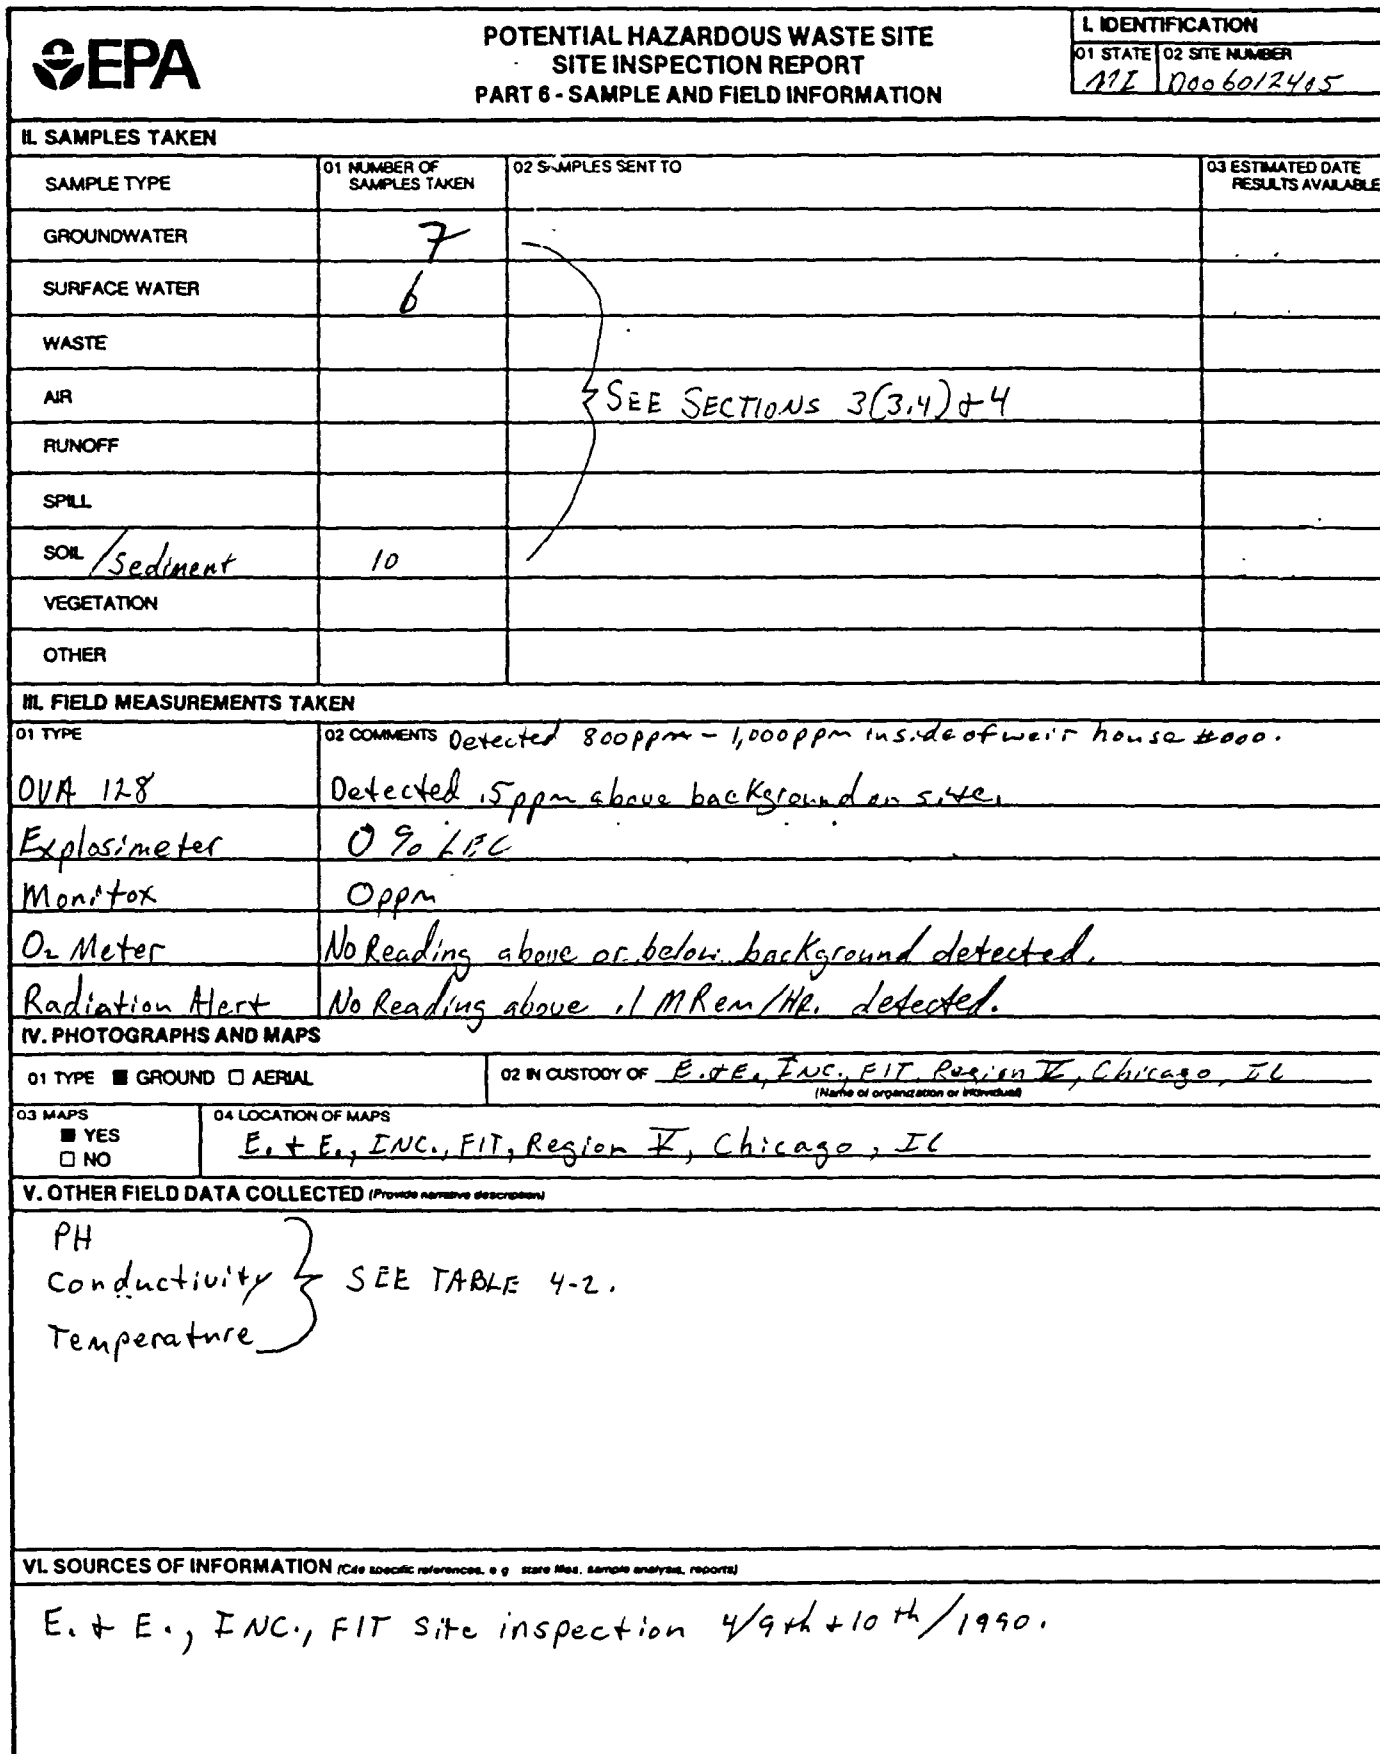 EPA
POTENTIAL HAZARDOUS WASTE SITE
SITE INSPECTION REPORT
PART 6 - SAMPLE AND FIELD INFORMATION
I. IDENTIFICATION
01 STATE 02 SITE NUMBER
MI D006012405
II. SAMPLES TAKEN
SAMPLE TYPE
01 NUMBER OF SAMPLES TAKEN
02 SAMPLES SENT TO
03 ESTIMATED DATE RESULTS AVAILABLE
GROUNDWATER 7
SURFACE WATER 6
WASTE
AIR SEE SECTIONS 3(3.4) + 4
RUNOFF
SPILL
SOIL /Sediment 10
VEGETATION
OTHER
III. FIELD MEASUREMENTS TAKEN
01 TYPE 02 COMMENTS Detected 800ppm - 1,000ppm inside of weir house #000.
OVA 128 Detected .5ppm above background on site.
Explosimeter 0 %
Monitox 0ppm
O2 Meter No Reading above or below background detected.
Radiation Alert No Reading above .1 MRem/HR. detected.
IV. PHOTOGRAPHS AND MAPS
01 TYPE ■ GROUND □ AERIAL 02 IN CUSTODY OF E. & E., INC., FIT, Region V, Chicago, IL
(Name of organization or individual)
03 MAPS ■ YES □ NO
04 LOCATION OF MAPS
E. + E., INC., FIT, Region V, Chicago, IL
V. OTHER FIELD DATA COLLECTED (Provide narrative description)
PH
Conductivity SEE TABLE 4-2.
Temperature
VI. SOURCES OF INFORMATION (Cite specific references, e.g. state files, sample analysis, reports)
E. + E., INC., FIT Site inspection 4/9th + 10th/1990.